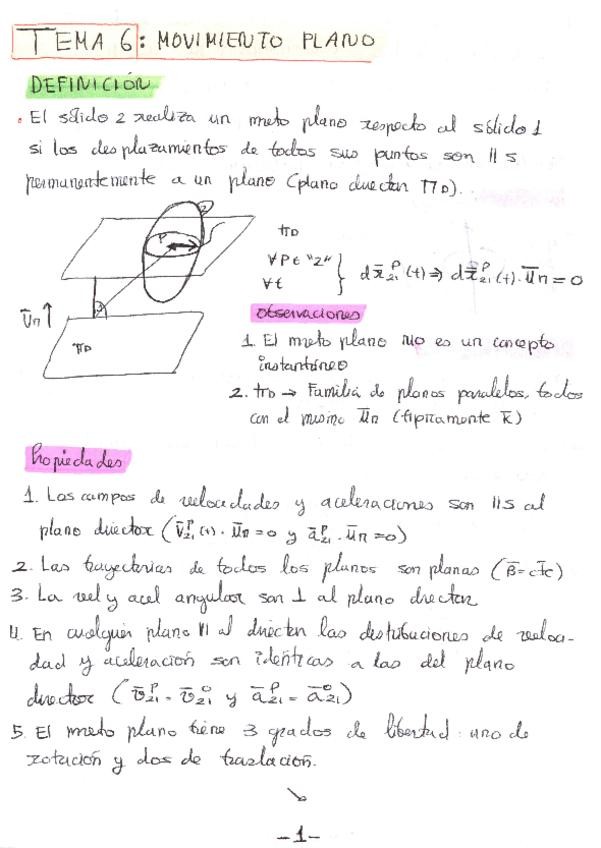 TEMA 6: MOVIMIENTO PLANO
DEFINICIÓN
. El sólido 2 realiza un mvto plano respecto al sólido 1
si los desplazamientos de todos sus puntos son || s
permanentemente a un plano (plano director ΠD).
2
P
ΠD
∀P ∈ "2"
∀t
} dx̄₂₁ᴾ(t) ⇒ dx̄₂₁ᴾ(t) · ūn = 0
ūn ↑
ΠD
Observaciones
1. El mvto plano NO es un concepto
instantáneo
2. ΠD → Familia de planos paralelos, todos
con el mismo ūn (típicamente k̄)
Propiedades
1. Los campos de velocidades y aceleraciones son ||s al
plano director (v̄₂₁ᴾ(t) · ūn = 0 y ā₂₁ᴾ · ūn = 0)
2. Las trayectorias de todos los planos son planas (B̄ = cte)
3. La vel y acel angular son ⊥ al plano director
4. En cualquier plano || al director las distribuciones de veloci-
dad y aceleración son idénticas a las del plano
director (v̄₂₁ᴾ = v̄₂₁ᴼ y ā₂₁ᴾ = ā₂₁ᴼ)
5. El mvto plano tiene 3 grados de libertad: uno de
rotación y dos de traslación.
↘
-1-